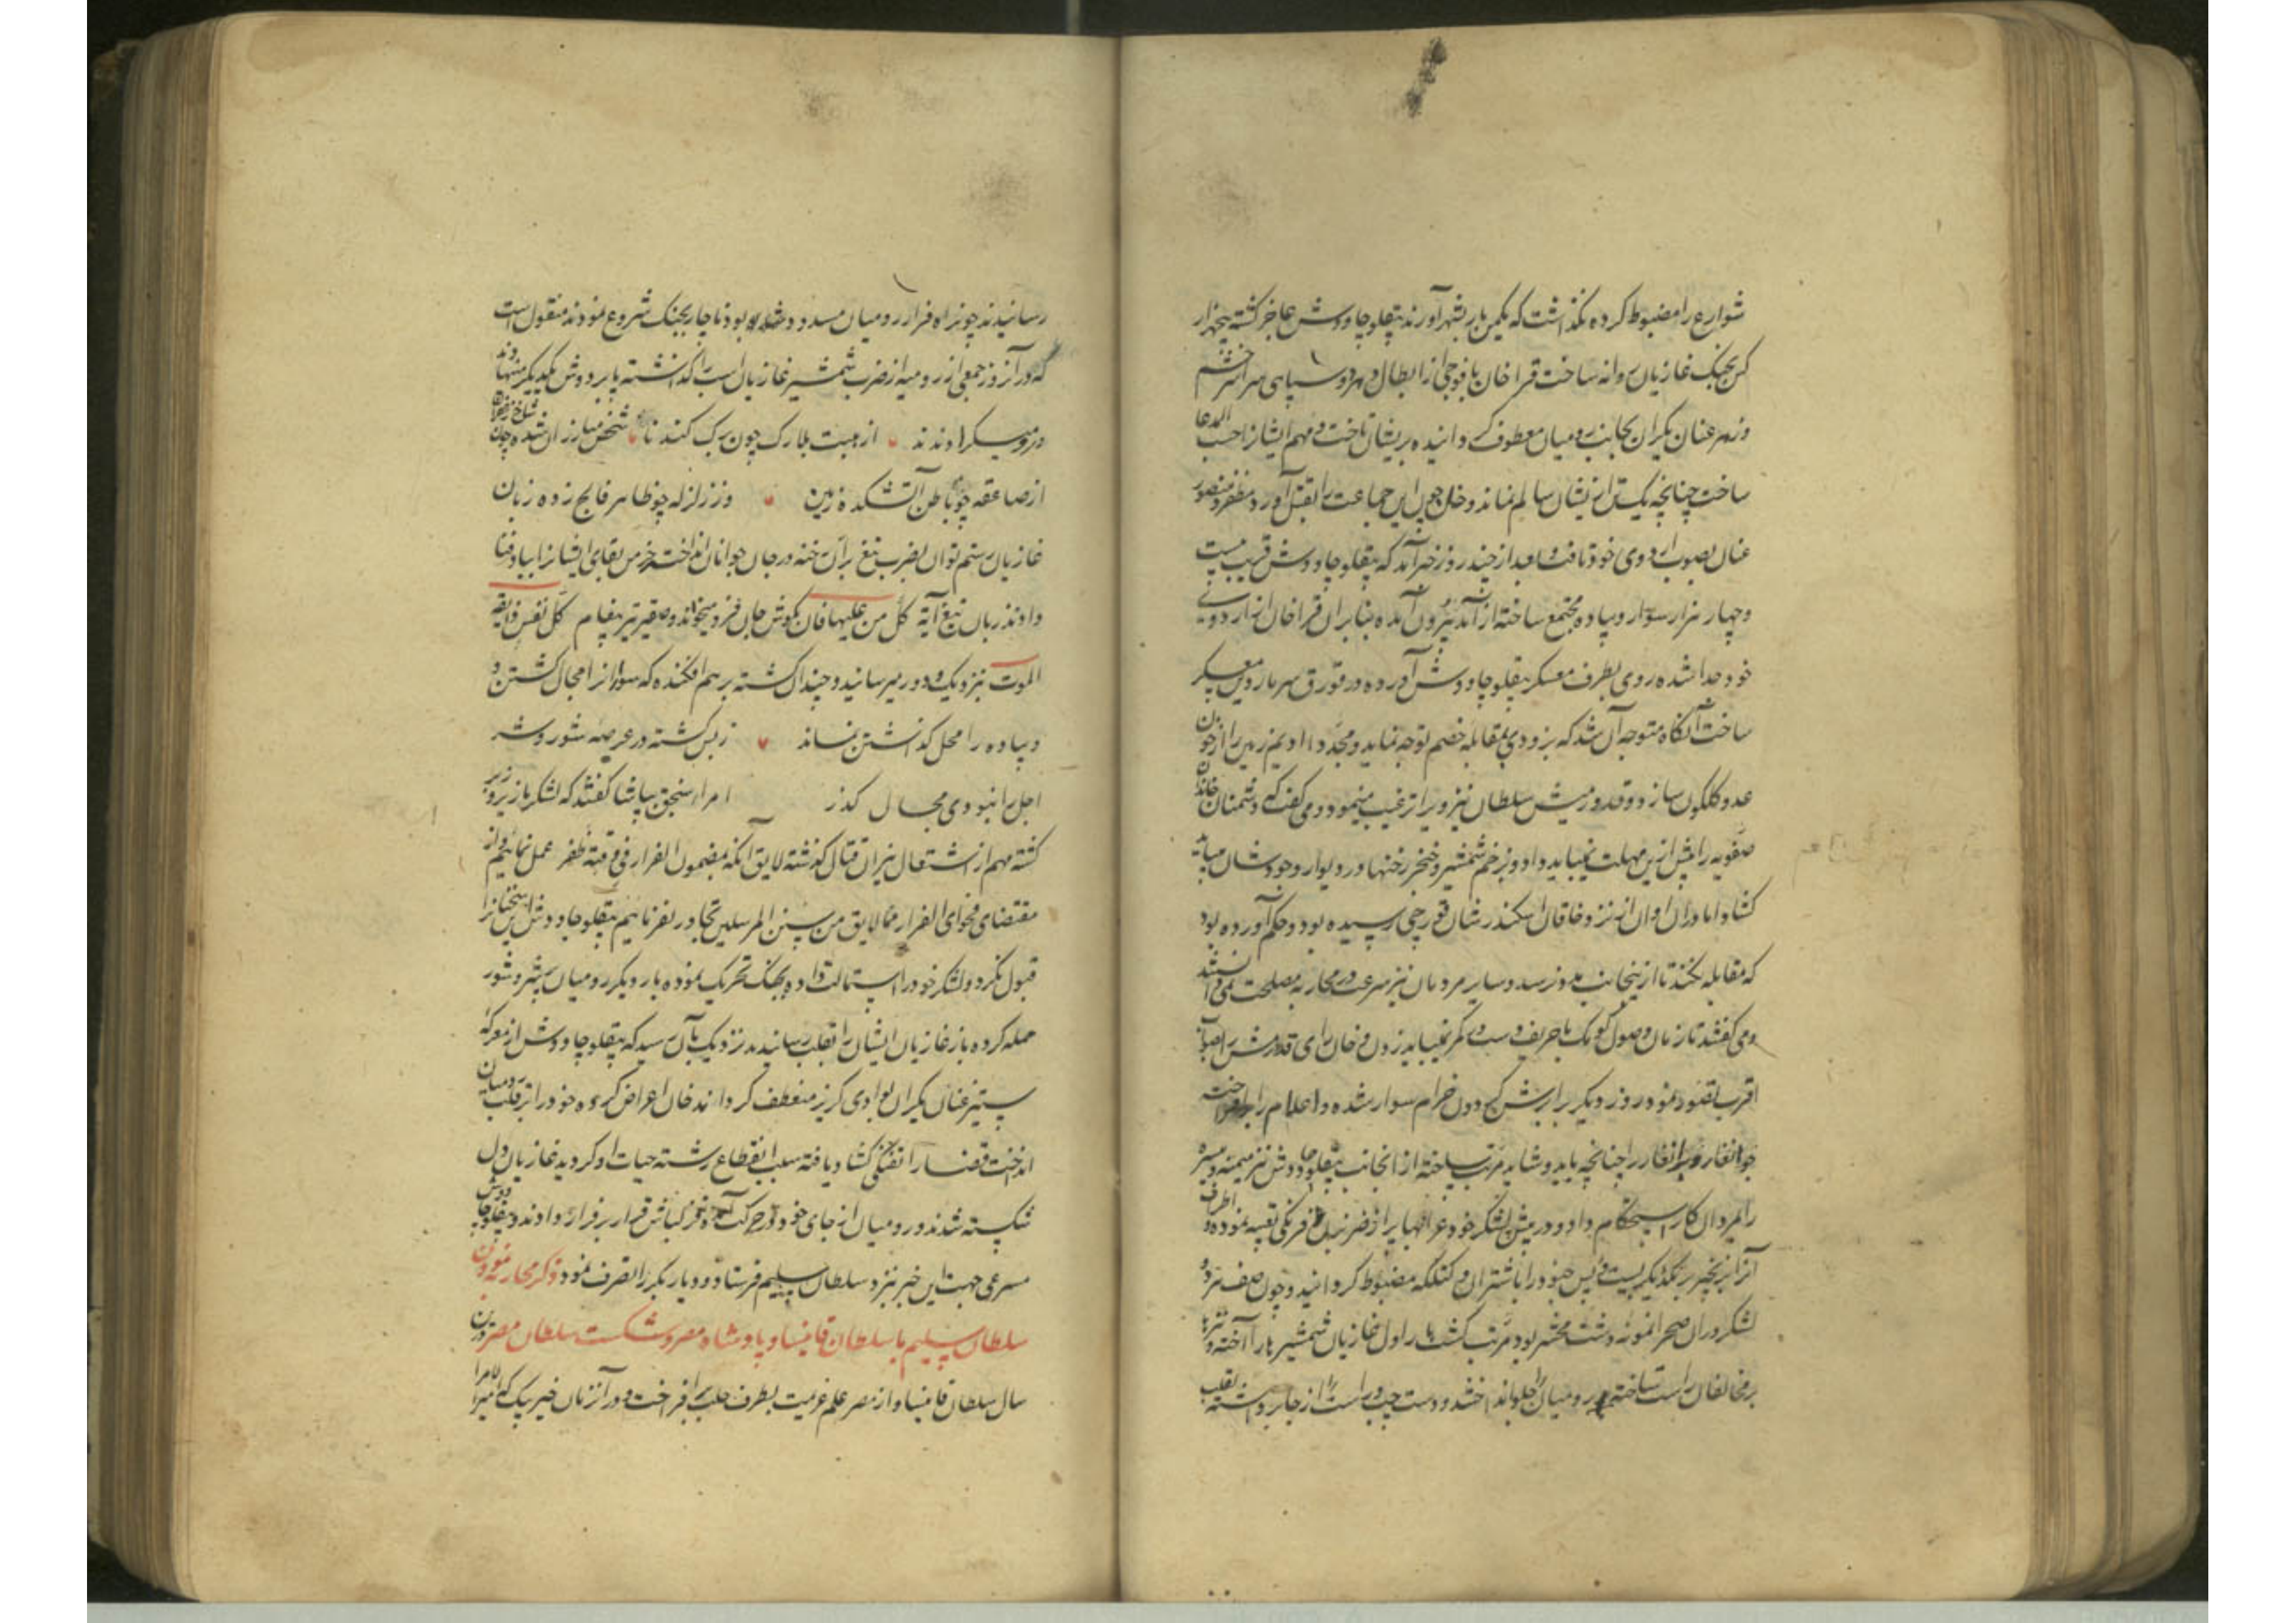 شوارع را مضبوط کرده نگذاشت که یکمن بار بشهر آورند بیقلو چاووش عاجز گشته پنجهزار
کس بجنک غازیان روانه ساخت قراخان با فوجی از ابطال
و زهر عنان یکران بجانب رومیان معطوف گردانیده بریشان تاخت و مهم ایشانرا حسب المدعا
ساخت چنانچه یک تن از یشان سالم نماند و خان چون این جماعت را بقتل آورد مظفر و منصور
عنان بصوب اردوی خود تافت و بعد از چند روز خبر آمد که بیقلو چاووش قریب بیست
و چهار هزار سوار و پیاده مجتمع ساخته از آمد بیرون آمده بنابران قراخان از اردوی
خود جدا شده روی بطرف معسکر بیقلو چاووش آورده در قورق معسکر
ساخت آنکاه متوجه آن شد که بزودی بمقابله خصم توجه نماید و مجددا ادیم زمین را از خون
عدو گلگون سازد و قدورمیش سلطان نیز ویرا ترغیب مینمود و می گفت که دشمنان خاندان
صفویه را بیش ازین مهلت نمیباید داد و بزخم شمشیر و خنجر رخنها در دیوار وجودشان میباید
گشاد اما دران اوان از نزد خاقان اسکندر شان قورچی رسیده بود و حکم آورده بود
که مقابله نکنند تا ازینجانب مدد رسد و سایر مردمان نیز سرعت در محاربه مصلحت نمی دانستند
و می گفتند تا زمان وصول کومک با حریف دست در کمر نمیباید زدن و خان رای قدورمش را بصواب
اقرب تصور نمود روز دیگر بر ابرش گردون خرام سوار شده و اعلام را برافراخت
جوانغار و برانغار را چنانچه باید و شاید مرتب ساخته از انجانب بیقلو چاووش نیز میمنه و میسره
را بمردان کار استحکام داد و در پیش لشکر خود عرابها
آنرا بزنجیر بر یکدیگر بست و پس جنود را با شتران مضبوط گردانید و چون صف هر دو
لشکر دران صحرا نمونه دشت محشر بود مرتب گشت بار اول غازیان شمشیرها را آخته و نیزها
بر مخالفان راست ساخته بر رومیان جلو انداختند و دست چپ و راست را از جا برداشته بقلب
رسانیدند چون راه فرار رومیان مسدود شده بود ناچار بجنک شروع نمودند منقول است
که در آنروز جمعی از رومیه از ضرب شمشیر غازیان اسب را گذاشته پا بر دوش یکدیگر
از هیبت بلارک چون برک کند نا
از صاعقه چو باطن آتشکده زمین وز زلزله چو ظاهر فالج زده زبان
غازیان رستم توان بضرب تیغ بران رخنه در جان جوانان انداخت خرمن بقای ایشانرا بباد فنا
دادند زبان تیغ آیه کل من علیها فان بگوش جان فرو میخواند و صفیر تیر پیغام کل نفس ذایقه
الموت بنزدیک و دور میرسانید و چندان کشته بر هم افکنده که سوار را مجال گشتن و
و پیاده را محل گذاشتن نماند ز بس کشته در عرصه شور و شر
اجل را نبودی مجال گذر امراء سنجق بپاشا گفتند که لشکر ما زیر و زبر
گشته مهم از اشتعال نیران قتال گذشته لایق آنکه بمضمون الفرار فی وقته ظفر عمل نمائیم و از
مقتضای فحوای الفرار مما لایق من سنن المرسلین تجاوز نفرمائیم بیقلو چاووش این سخنانرا
قبول نکرد و لشکر خود را استمالت داده بجنک تحریک نموده بار دیگر رومیان پر شر و شور
حمله کرده باز غازیان ایشان را بقلب رسانیدند نزدیک بآن رسید که بیقلو چاووش از معرکه
ستیز عنان یکران بوادی گریز منعطف گرداند خان اعراض کرده خود را بر قلب رومیان
انداخت قضا را تفنگی گشاد یافته سبب انقطاع رشته حیات او گردید غازیان دل
شکسته شدند و رومیان از جای خود در حرکت آمده قزلباش قرار بر فرار دادند و بیقلو چاووش
مسرعی جهت این خبر بنزد سلطان سلیم فرستاد و دیار بکر را تصرف نمود ذکر محاربه نمودن
سلطان سلیم با سلطان قانیساو پادشاه مصر و شکست سلطان مصر درین
سال سلطان قانیساو از مصر علم عزیمت بطرف حلب برافراخت و در آنزمان خیر بیک که میرالامرا